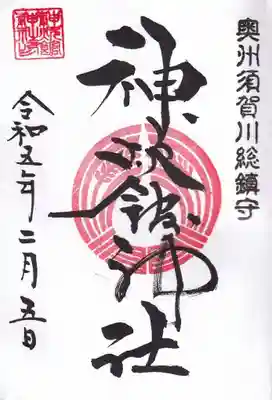 奥州須賀川総鎮守
神炊館神社
令和五年二月五日